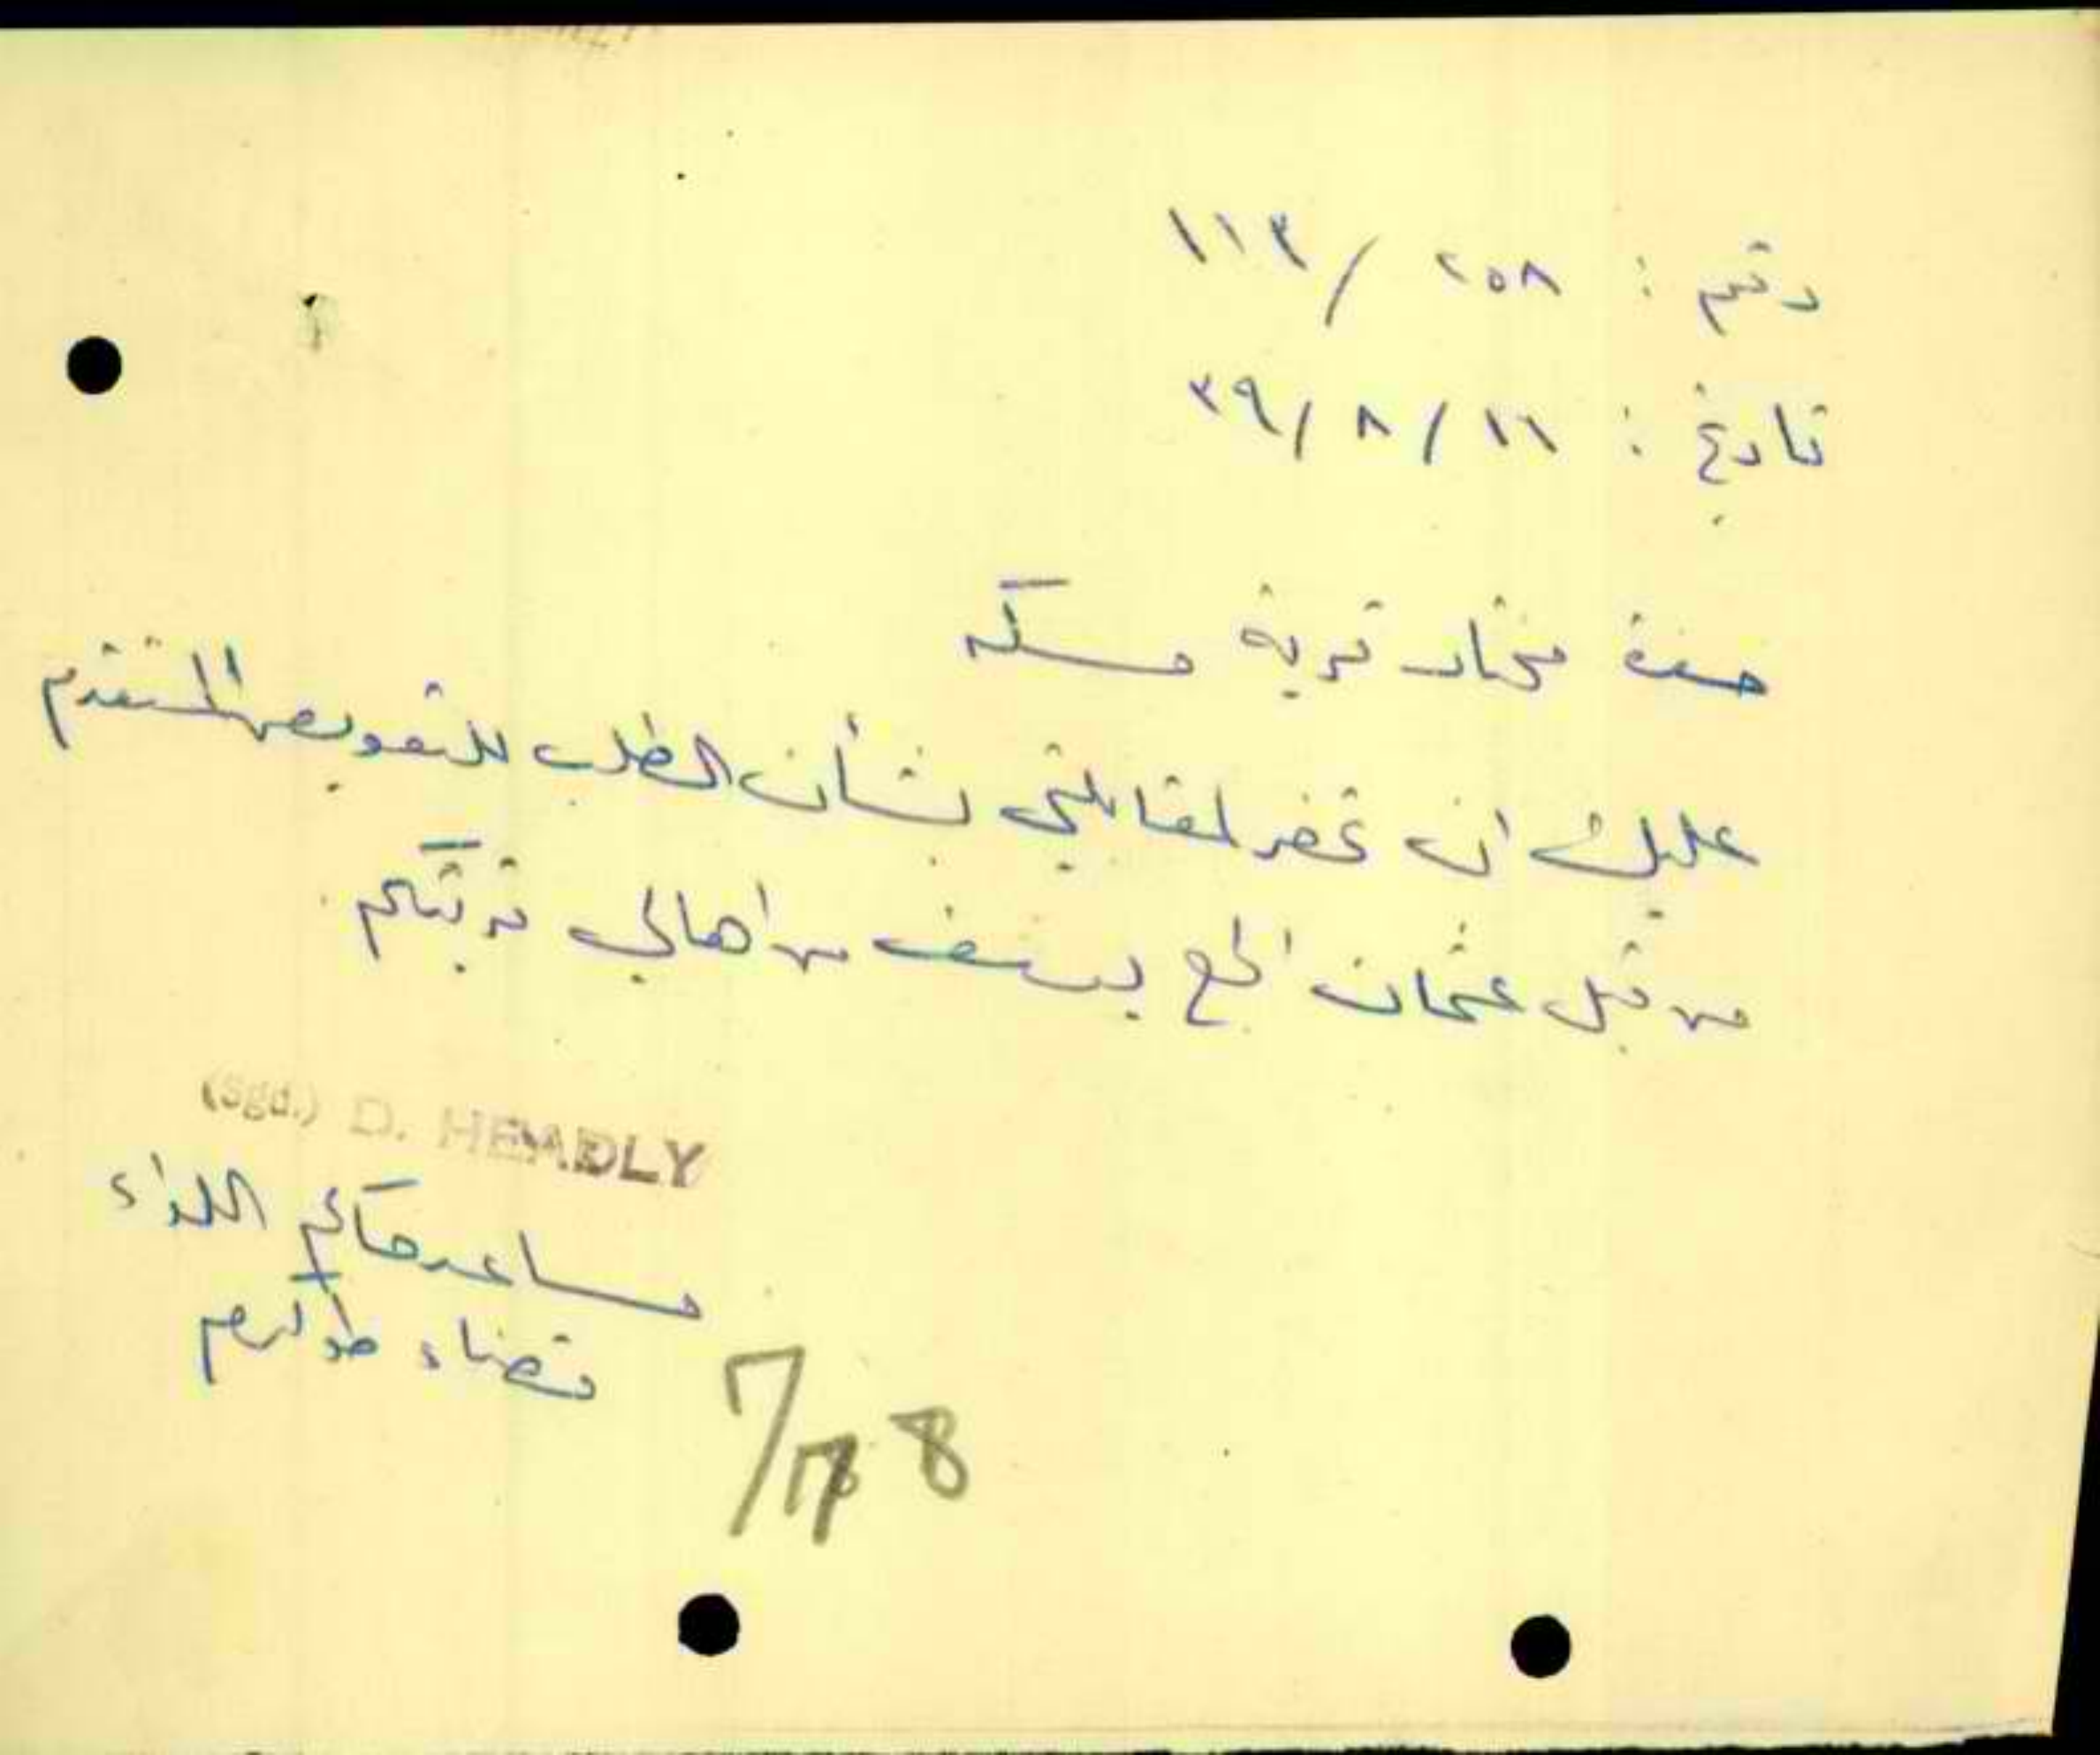 رقم : ٢٥٨ / ١١٣
تاريخ : ١١ / ٨ / ٣٩
حضرة مختار قرية مسكه
عليك ان تحضر لمقابلتي بشأن الطلب للتعويض المتقدم
من قبل عثمان الحج يوسف من اهالي قريتكم
(Sgd.) D. HEADLY
مساعد حاكم اللواء
قضاء طولكرم